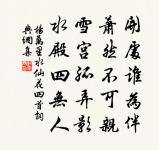 開處誰為伴
蕭然不可親
雪宮孤弄影
水殿四無人
楊萬里水仙花四首詞
典網集